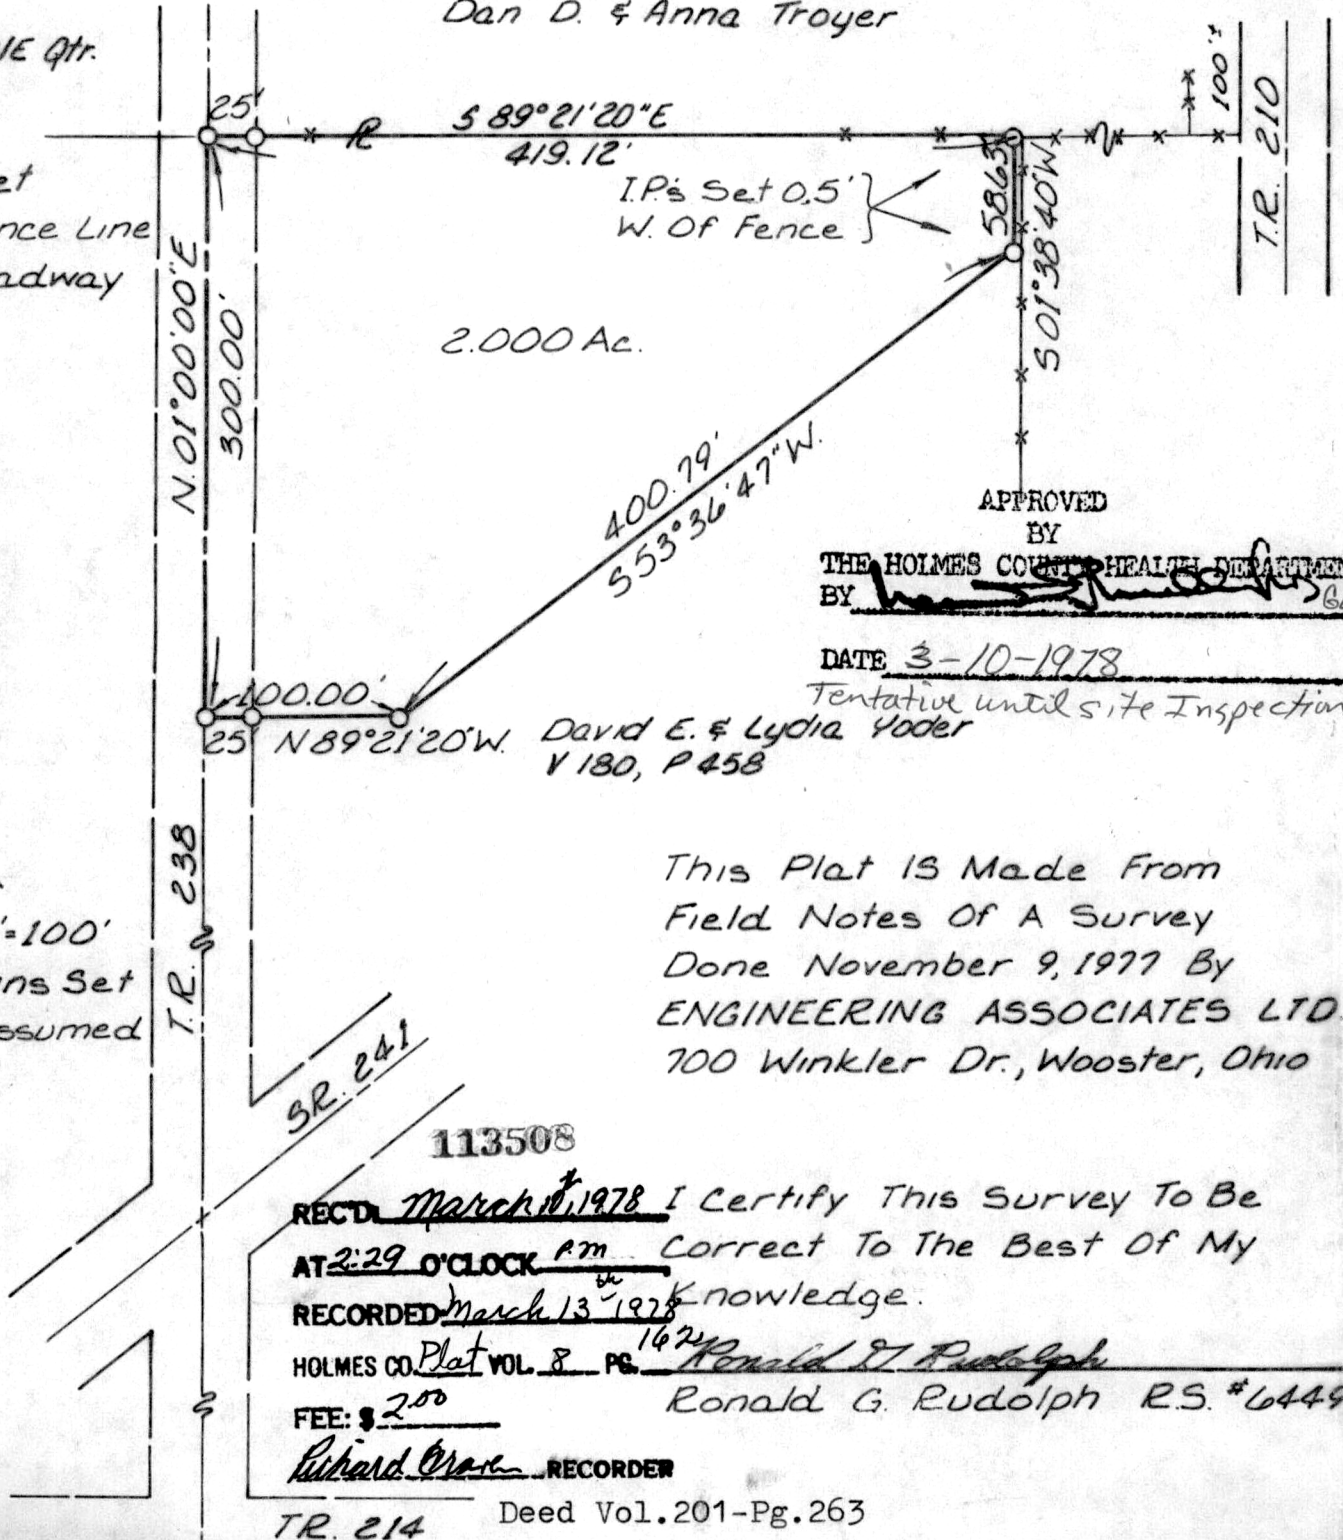 Dan D. & Anna Troyer
Qtr.
25'
S 89°21'20"E
419.12'
100'±
T.R. 210
I.P.'s Set 0.5'
W. Of Fence
58.63'
S 01°38'40"W
Line
N. 01°00'00"E
300.00'
2.000 Ac.
400.79'
S 53°36'47"W.
APPROVED
BY
THE HOLMES COUNTY HEALTH
BY
DATE 3-10-1978
Tentative until site Inspection
100.00'
25' N 89°21'20"W.
David E. & Lydia Yoder
V 180, P 458
T.R. 238
=100'
Set
This Plat Is Made From
Field Notes Of A Survey
Done November 9, 1977 By
ENGINEERING ASSOCIATES LTD.
700 Winkler Dr., Wooster, Ohio
S.R. 241
113508
REC'D. March 10, 1978
AT 2:29 O'CLOCK P.M
RECORDED March 13th 1978
HOLMES CO. Plat VOL. 8 PG. 162
FEE: $ 2.00
Richard Graven RECORDER
I Certify This Survey To Be
Correct To The Best Of My
Knowledge.
Ronald G. Rudolph
Ronald G. Rudolph R.S. #6449
Deed Vol.201-Pg.263
T.R. 214